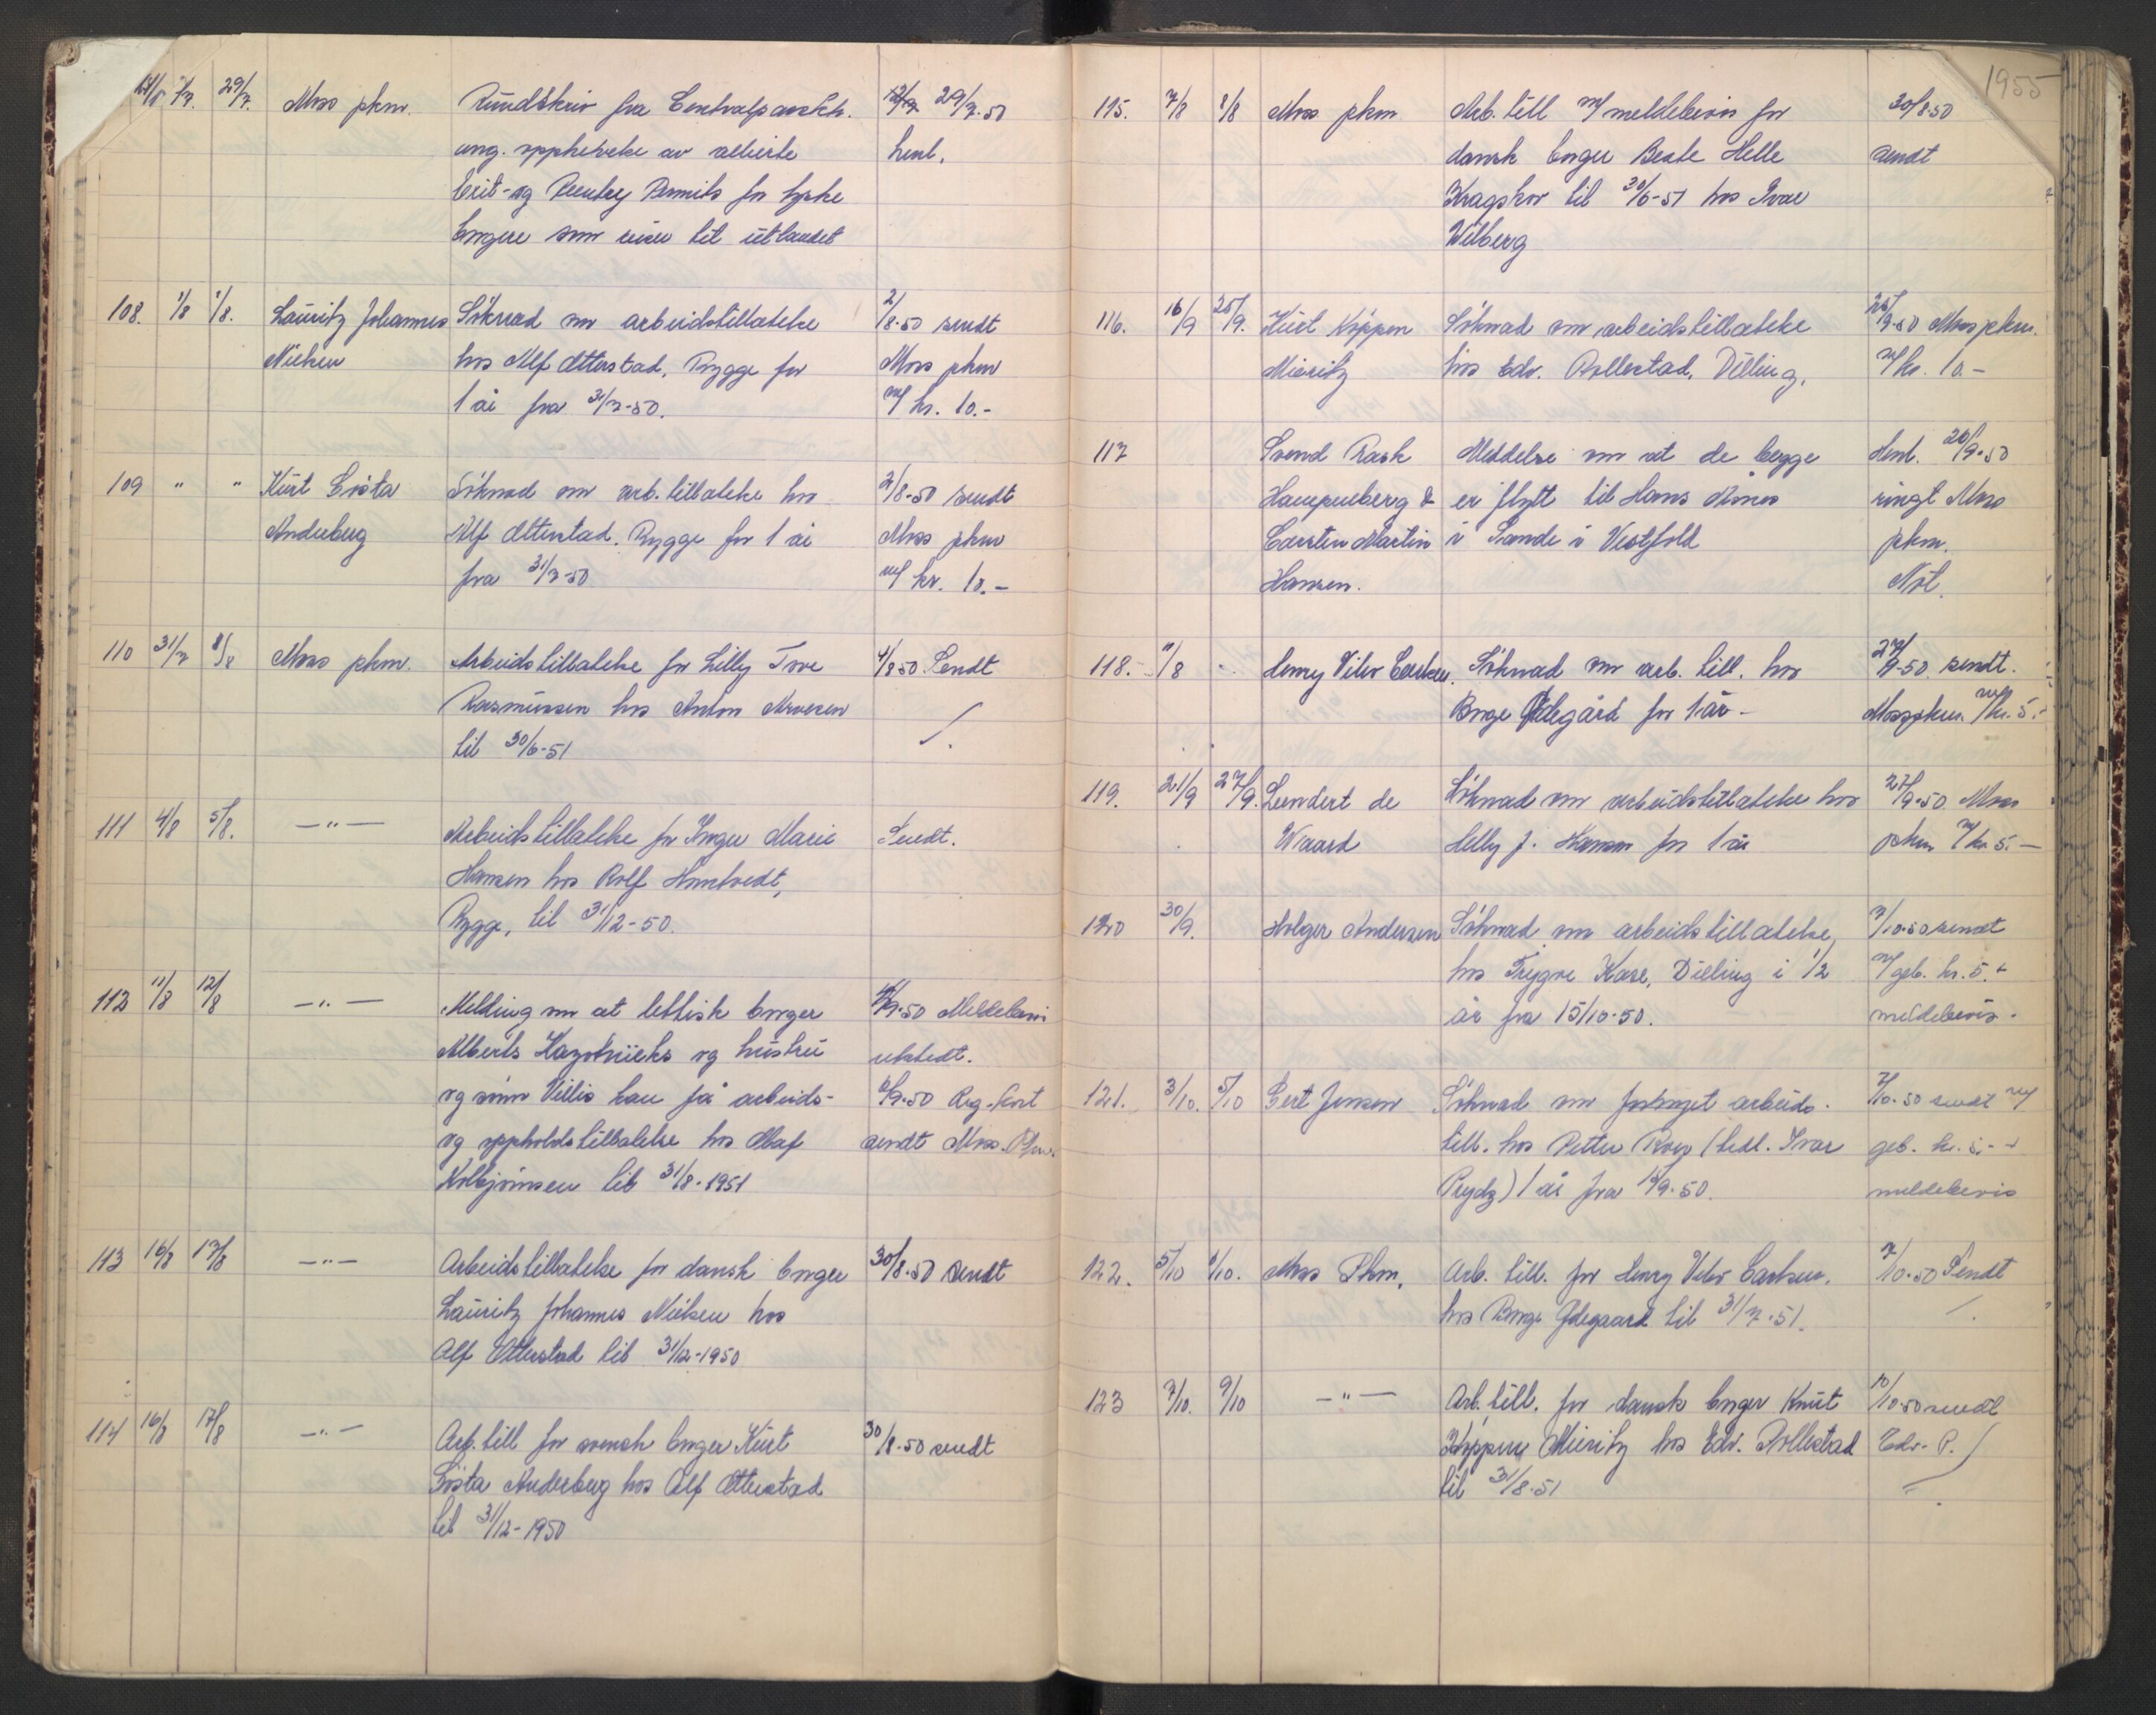 1955
29/7. Moss pkm. Rundskriv fra Centralpasskt. 29/7.50
ang. opphevelse av allierte henl.
Exit- og Reentry Permits for tyske
borgere som reiser til utlandet
108. 1/8 1/8. Lauritz Johannes Söknad om arbeidstillatelse 2/8.50 sendt
Nielsen hos Alf Otterstad, Rygge for Moss pkm
1 år fra 31/7-50. m/ kr. 10.-
109 " " Kurt Gösta Söknad om arb. tillatelse hos 2/8-50 sendt
Anderberg Alf Otterstad. Rygge for 1 år Moss pkm
fra 31/7-50 m/ kr. 10.-
110 31/7 8/8 Moss pkm. Arbeidstillatelse for Lilly Tove 4/8.50. Sendt
Rasmussen hos Anton Arvesen
til 30/6-51
111 4/8 5/8. —"— Arbeidstillatelse for Inger Marie Sendt.
Hansen hos Rolf
Rygge, til 31/12-50.
112 11/8 12/8 —"— Melding om at lettisk borger 9.50 Meldebevis
Alberts og hustru utstedt.
og sönn Villis kan få arbeids- 9.50 Reg. kort
og oppholdstillatelse hos Olaf sendt Moss. Pkm.
Kolbjörnsen til 31/8-1951
113 16/8 17/8 —"— Arbeidstillatelse for dansk borger 30/8.50 sendt
Lauritz Johannes Nielsen hos
Alf Otterstad til 31/12-1950
114 16/8 17/8 —"— Arb. till for svensk borger Kurt 30/8.50 sendt
Gösta Anderberg hos Alf Otterstad
til 31/12-1950
115. 7/8 8/8 Moss pkm Arb. till m/ meldebevis for 30/8.50
dansk borger Beate Helle sendt
Kragskov til 30/6-51 hos Ivar
Wilberg
116. 16/9 25/9. Kurt Köppen Söknad om arbeidstillatelse 26/9.50 Moss pkm.
Mieritz hos Edv. Rollestad, Dilling. m/ kr. 10.-
117 Svend Rask Meddelse om at de begge Henl. 26/9.50
Hampenberg & er flytt til Hans Aanes ringt Moss
Carsten Martin i Sande i Vestfold pkm.
Hansen. Not.
118. 11/8 - Henry Viktor Carlsen. Söknad om arb. till. hos 27/9-50. sendt.
Borge Ödegård for 1 år - Moss pkm. m/kr. 5.-
119. 21/9 27/9. Leendert de Söknad om arbeidstillatelse hos 27/9.50 Moss
Waard Helly J. Hansen for 1 år pkm m/kr 5.—
120 30/9. Holger Andersen Söknad om arbeidstillatelse, 7/10.50 sendt
hos Trygve Kase, Dilling i 1/2 m/ geb. kr. 5 +
år fra 15/10-50. meldebevis.
121. 3/10. 5/10 Gert Jensen Söknad om forlenget arbeids. 7/10.50 sendt m/
till. hos Petter Roer (tidl. Ivar geb. kr. 5.- +
Prydz) 1 år fra 15/9-50. meldebevis
122. 5/10 6/10. Moss Pkm. Arb. till. for Henry Viktor Carlsen. 7/10.50 Sendt
hos Borge Ödegaard til 31/7.51.
123 7/10. 9/10 —"— Arb. till. for dansk borger Knut 10/10.50 sendt
Köppen Mieritz hos Edv. Rollestad Edv. R.
til 31/8.51